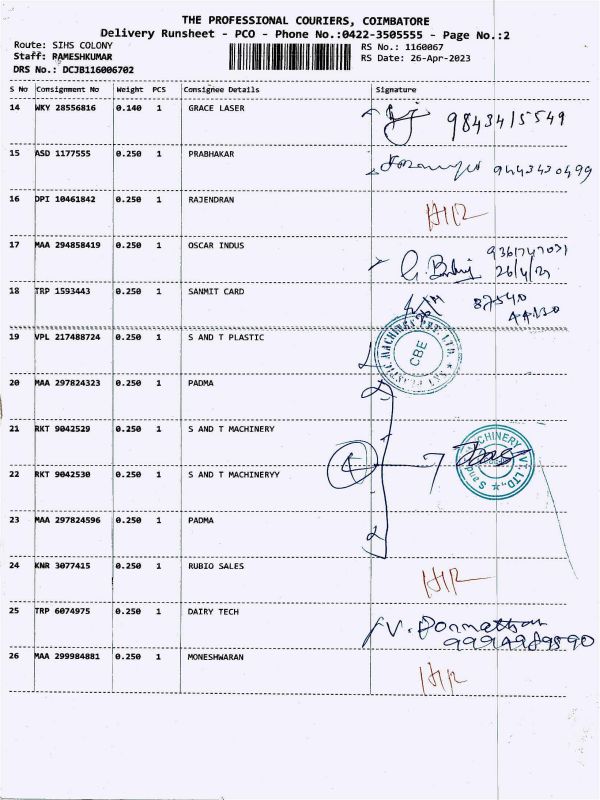 THE PROFESSIONAL COURIERS, COIMBATORE
Delivery Runsheet - PCO - Phone No.:0422-3505555 - Page No.:2
Route: SIHS COLONY
RS No.: 1160067
Staff: RAMESHKUMAR
RS Date: 26-Apr-2023
DRS No.: DCJB116006702
S No Consignment No Weight PCS Consignee Details Signature
14 WKY 28556816 0.140 1 GRACE LASER
9843415549
15 ASD 1177555 0.250 1 PRABHAKAR
9443430499
16 DPI 10461842 0.250 1 RAJENDRAN
17 MAA 294858419 0.250 1 OSCAR INDUS
26/4/23
18 TRP 1593443 0.250 1 SANMIT CARD
87540
19 VPL 217488724 0.250 1 S AND T PLASTIC
CBE
20 MAA 297824323 0.250 1 PADMA
21 RKT 9042529 0.250 1 S AND T MACHINERY
22 RKT 9042530 0.250 1 S AND T MACHINERYY
23 MAA 297824596 0.250 1 PADMA
24 KNR 3077415 0.250 1 RUBIO SALES
25 TRP 6074975 0.250 1 DAIRY TECH
9994989590
26 MAA 299984881 0.250 1 MONESHWARAN